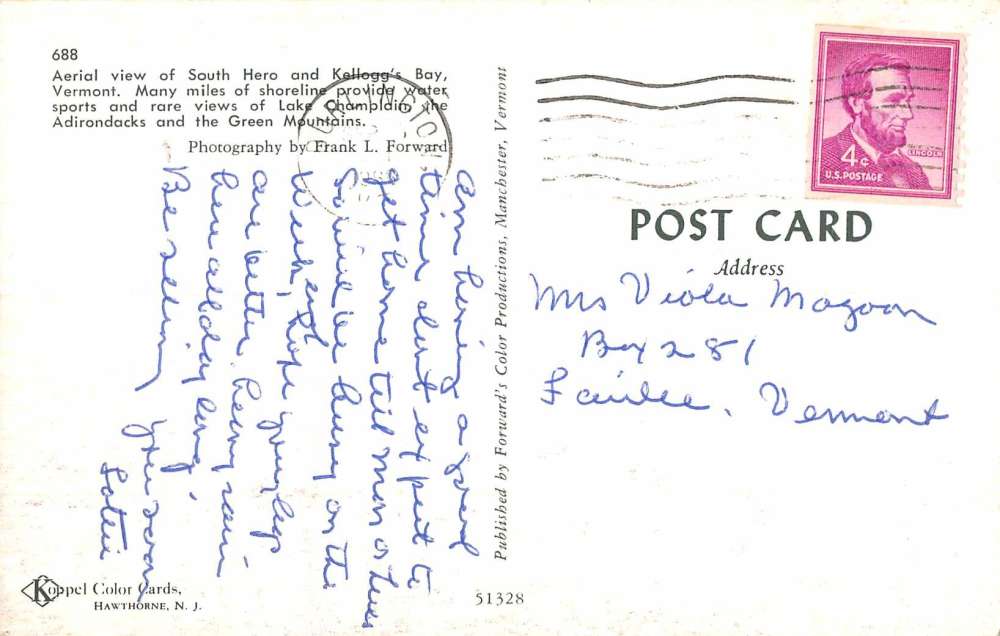 688
Aerial view of South Hero and Kellogg's Bay,
Vermont. Many miles of shoreline provide water
sports and rare views of Lake Champlain, the
Adirondacks and the Green Mountains.
Photography by Frank L. Forward
Am having a good
time dont expect to
get home till mon or tues
Sammie be busy on the
Week end, hope your legs
are better, heavy rain
here all day long.
Be seeing you soon
Lottie
Published by Forward's Color Productions, Manchester, Vermont
4¢
LINCOLN
U.S. POSTAGE
POST CARD
Address
Mrs Viola Magoon
Box 281
Fairlee, Vermont
Koppel Color Cards,
HAWTHORNE, N. J.
51328